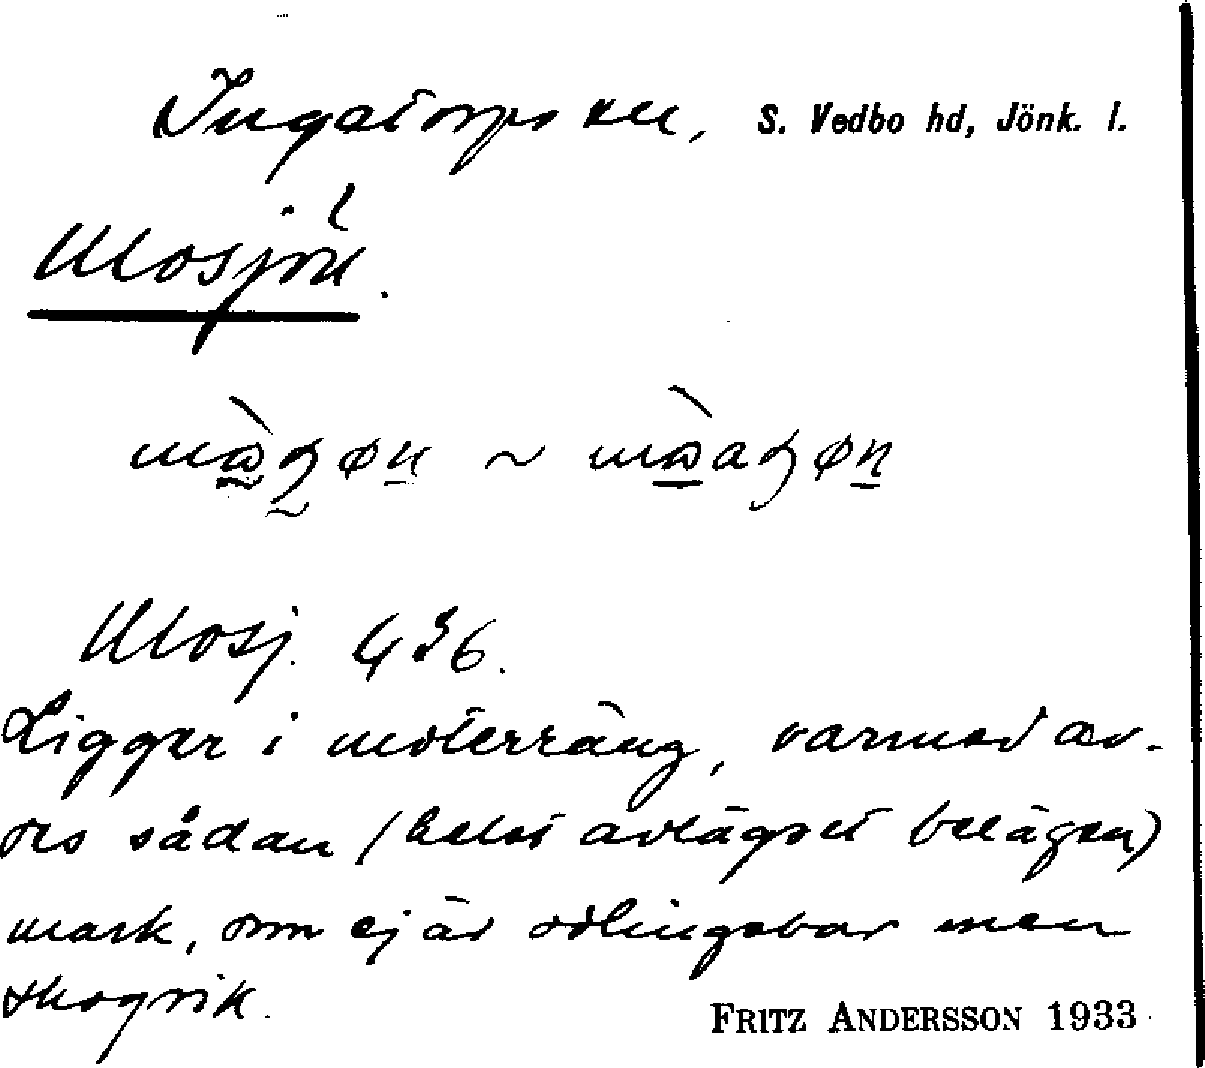 Ingatorps sn, S. Vedbo hd, Jönk. l.
Mosjön.
Mosj. 436.
Ligger i moterräng, varmed av-
ses sådan (helst avlägset belägen)
mark, som ej är odlingsbar men
skogrik.
FRITZ ANDERSSON 1933